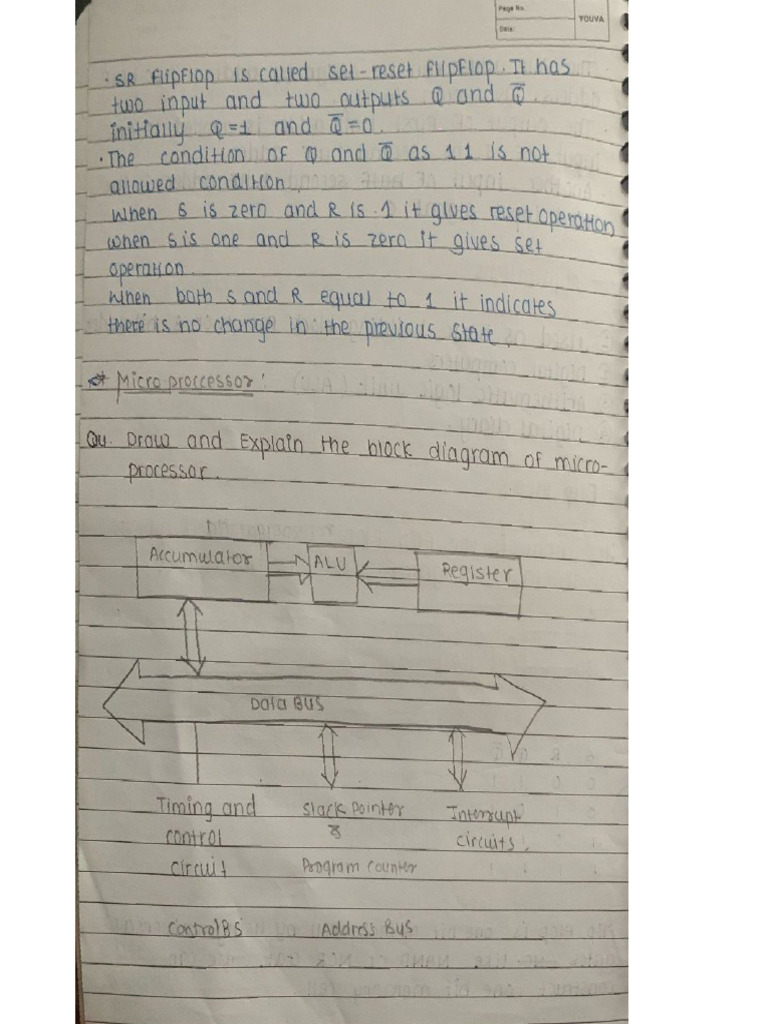 Page No.
YOUVA
Date:
· SR FlipFlop is called set-reset FlipFlop. It has
two input and two outputs Q and Q̅.
initially Q=1 and Q̅=0.
· The condition of Q and Q̅ as 1 1 is not
allowed condition.
when S is zero and R is 1 it gives reset operation
when S is one and R is zero it gives set
operation.
when both S and R equal to 1 it indicates
there is no change in the previous state.
Micro proccessor:
Qu. Draw and Explain the block diagram of micro-
processor.
Accumulator ALU Register
Data Bus
Timing and Stack pointer Interrupt
control & circuits.
circuit Program Counter
control BS Address Bus